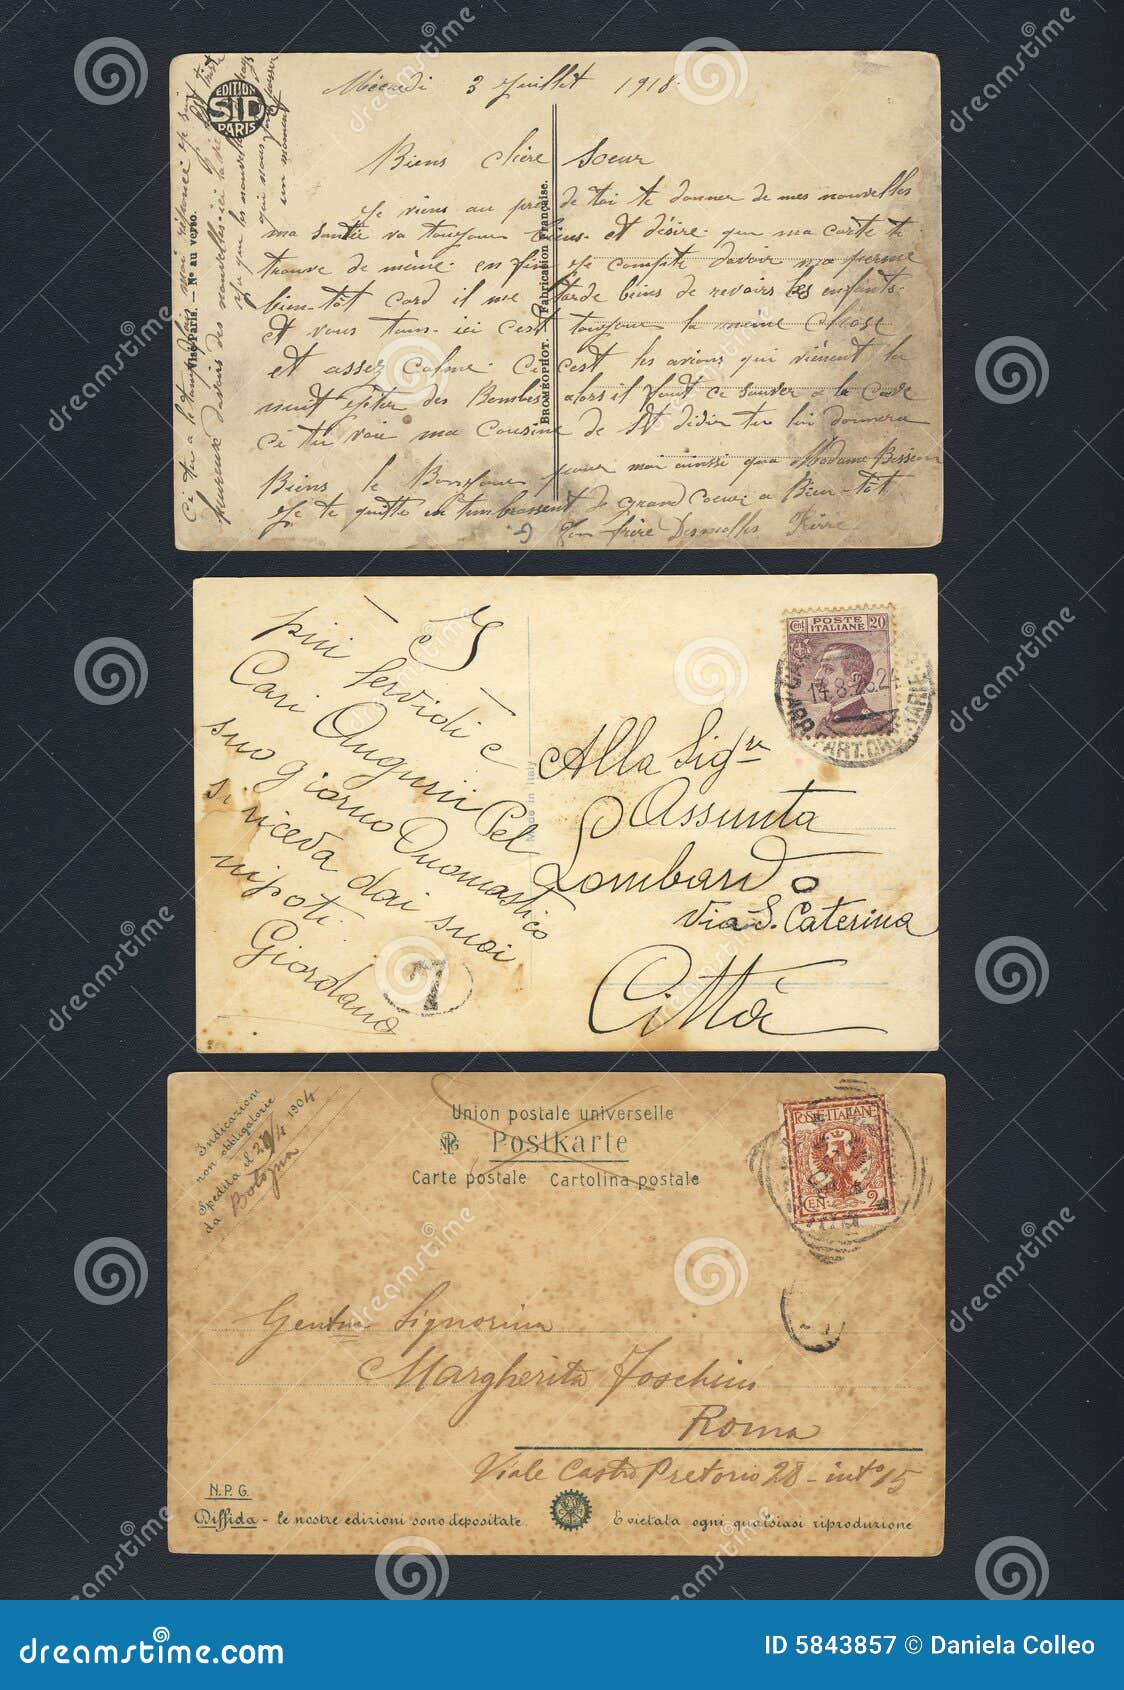 Mercredi 3 Juillet 1918
EDITION
SID
PARIS
Biens chère Soeur
Je viens au près de toi te donner de mes nouvelles
ma santée va toujour biens et désire que ma carte te
trouve de même en fin Je compte davoir ma perme
bien-tôt card il me tarde biens de revoirs les enfants
et vous tous ici c'est toujour la meme chose
et assez calme Ce c'est les avions qui viènent la
nuit des Bombes alors il faut ce sauver a la Cave
Ci tu voie ma Cousine de St didier tu lui donnera
Biens le Bonjour pour moi ainssi qua Madame Besson
Je te quitte en tembrassent de grand Coeur a Bien-tôt
Ton frère Desmolles Pierre
Visé Paris. - No au verso.
BROMÉOPHOT. Fabrication Française.
I
più fervidi e
Cari Auguri Pel
suo giorno Onomastico
si riceva dai suoi
nipoti
Giordano
7
Made in Italy
POSTE
ITALIANE
Cent 20
14.8-25.24
Alla Sigra
Assunta
Lombardo
Via S. Caterina
Città
Indicazioni
non obbligatorie
Spedita il 29/4 1904
da Bologna
Union postale universelle
NPG Postkarte
Carte postale Cartolina postale
POSTE ITALIANE
CEN. 2
Gentma Signorina
Margherita Foschini
Roma
Viale Castro Pretorio 28 - into 15
N.P.G.
Diffida - le nostre edizioni sono depositate. È vietata ogni qualsiasi riproduzione
dreamstime.com
ID 5843857 © Daniela Colleo